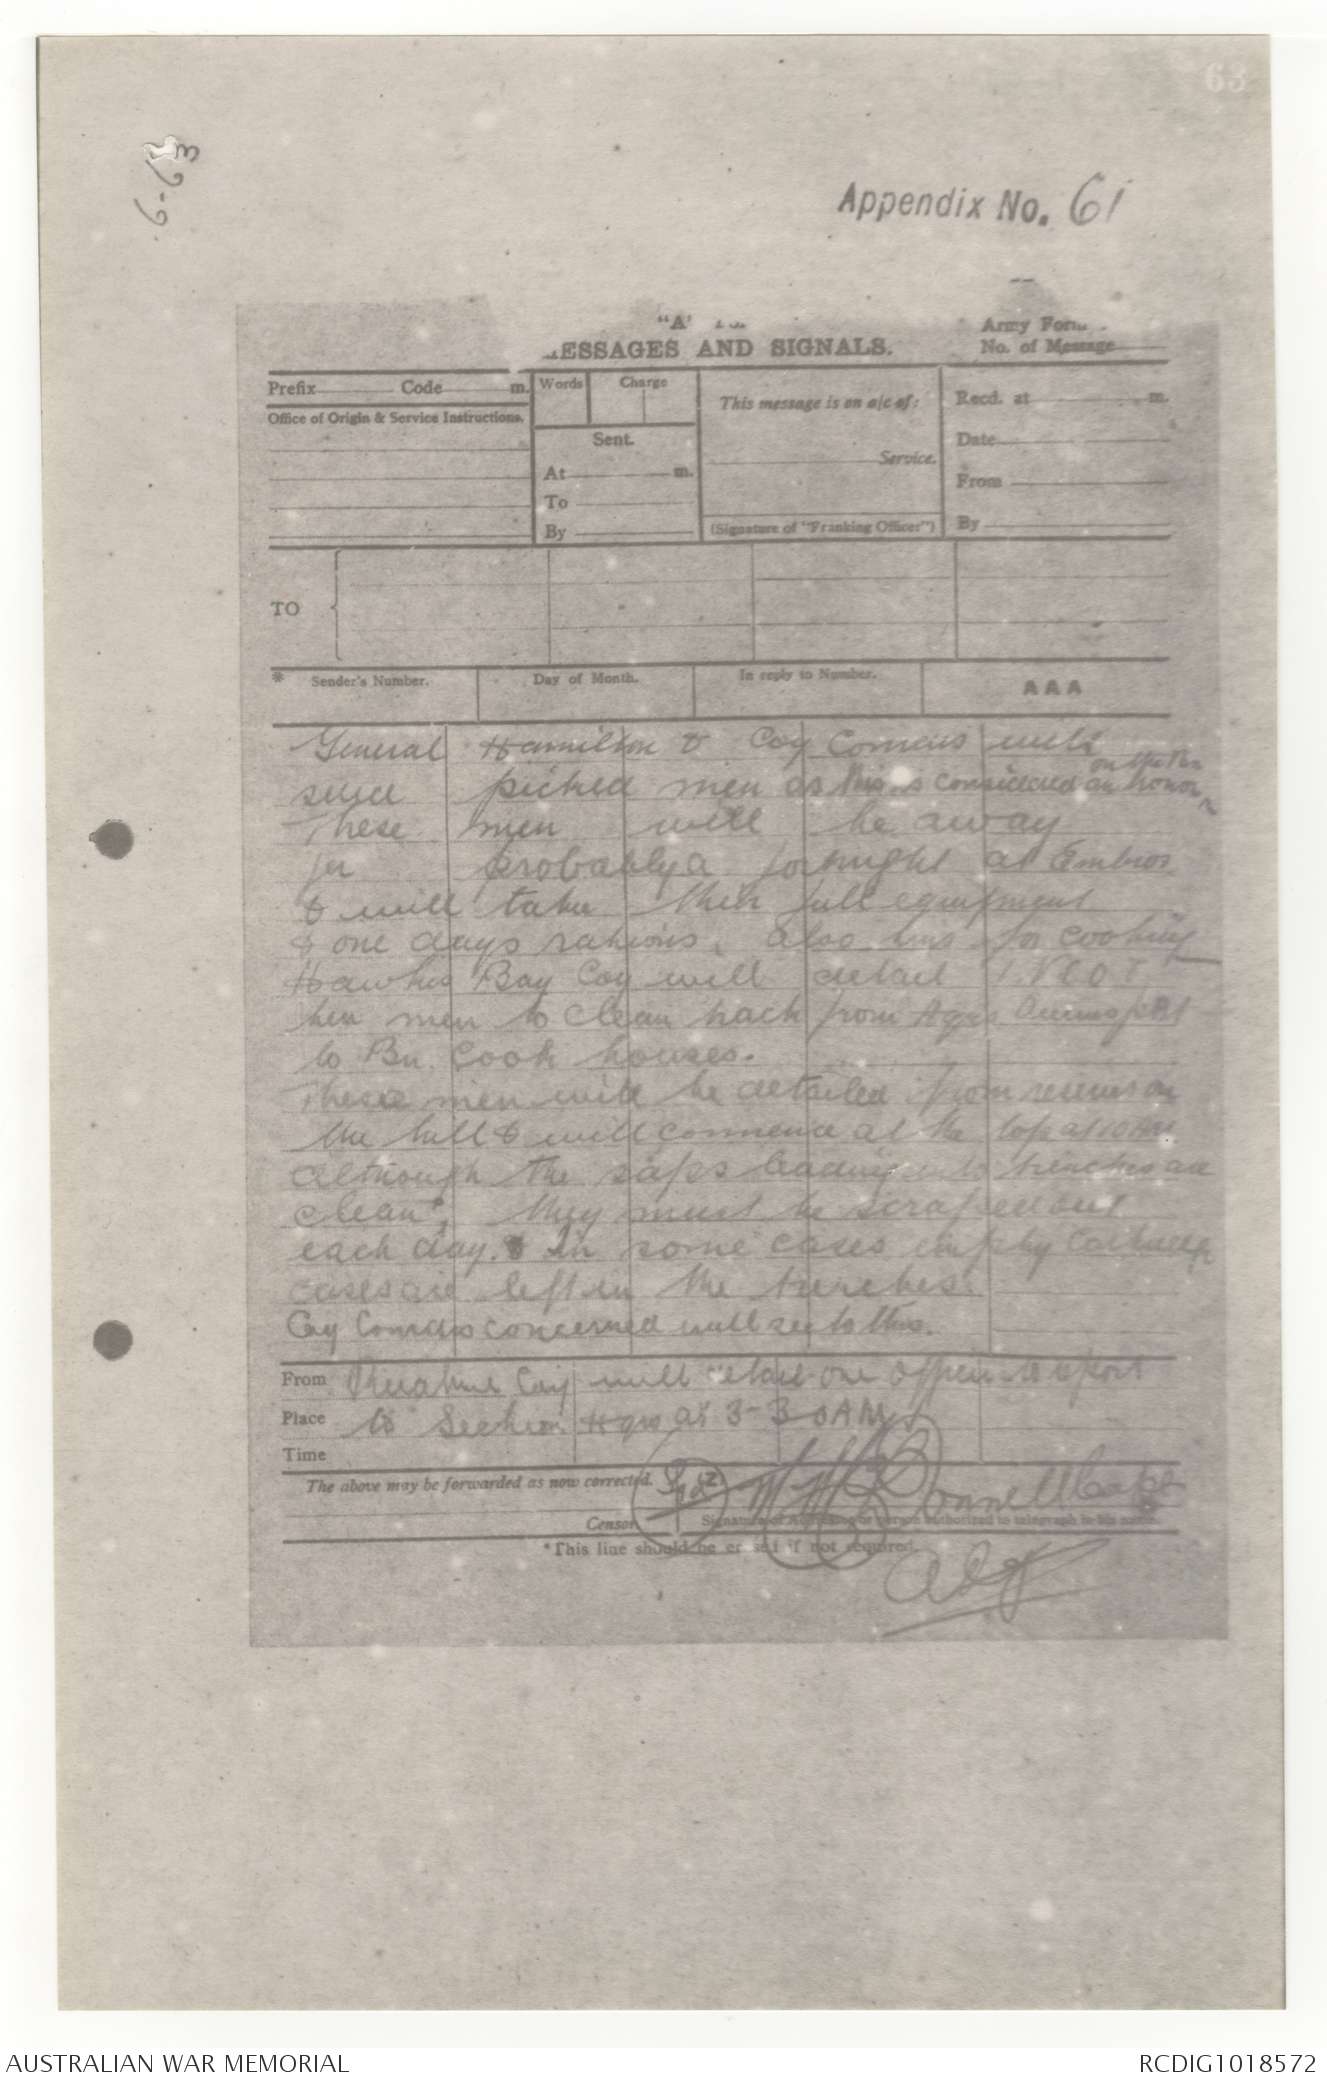 63
Appendix No. 61
"A"
ESSAGES AND SIGNALS.
Army Form
No. of Message
Prefix Code m.
Words Charge
This message is on a/c of:
Recd. at m.
Office of Origin & Service Instructions.
Sent.
At m.
To
By
Service.
(Signature of "Franking Officer")
Date
From
By
TO
* Sender's Number.
Day of Month.
In reply to Number.
AAA
General Hamilton & Coy Comdrs will
on the Bn
send picked men as this is considered an honor
These men will be away
for probably a fortnight at Embros
& will take their full equipment
& one days rations, also tins for cooking
Hawkes Bay Coy will detail 1. N C O &
ten men to clean track from Hqrs
to Bn. Cook houses.
These men will be detailed from reserves on
the hill & will commence at the top at 10 AM
Although the saps leading into trenches are
clean, they must be scraped out
each day. & In some cases empty cartridge
cases are left in the trenches.
Coy Comdrs concerned will see to this.
From Ruahine Coy will detail one Officer to report
Place to Section Hqrs at 3-30 AM
Time
The above may be forwarded as now corrected.
Censor
Signature of Addressor or person authorized to telegraph in his name.
*This line should be erased if not required.
AUSTRALIAN WAR MEMORIAL
RCDIG1018572